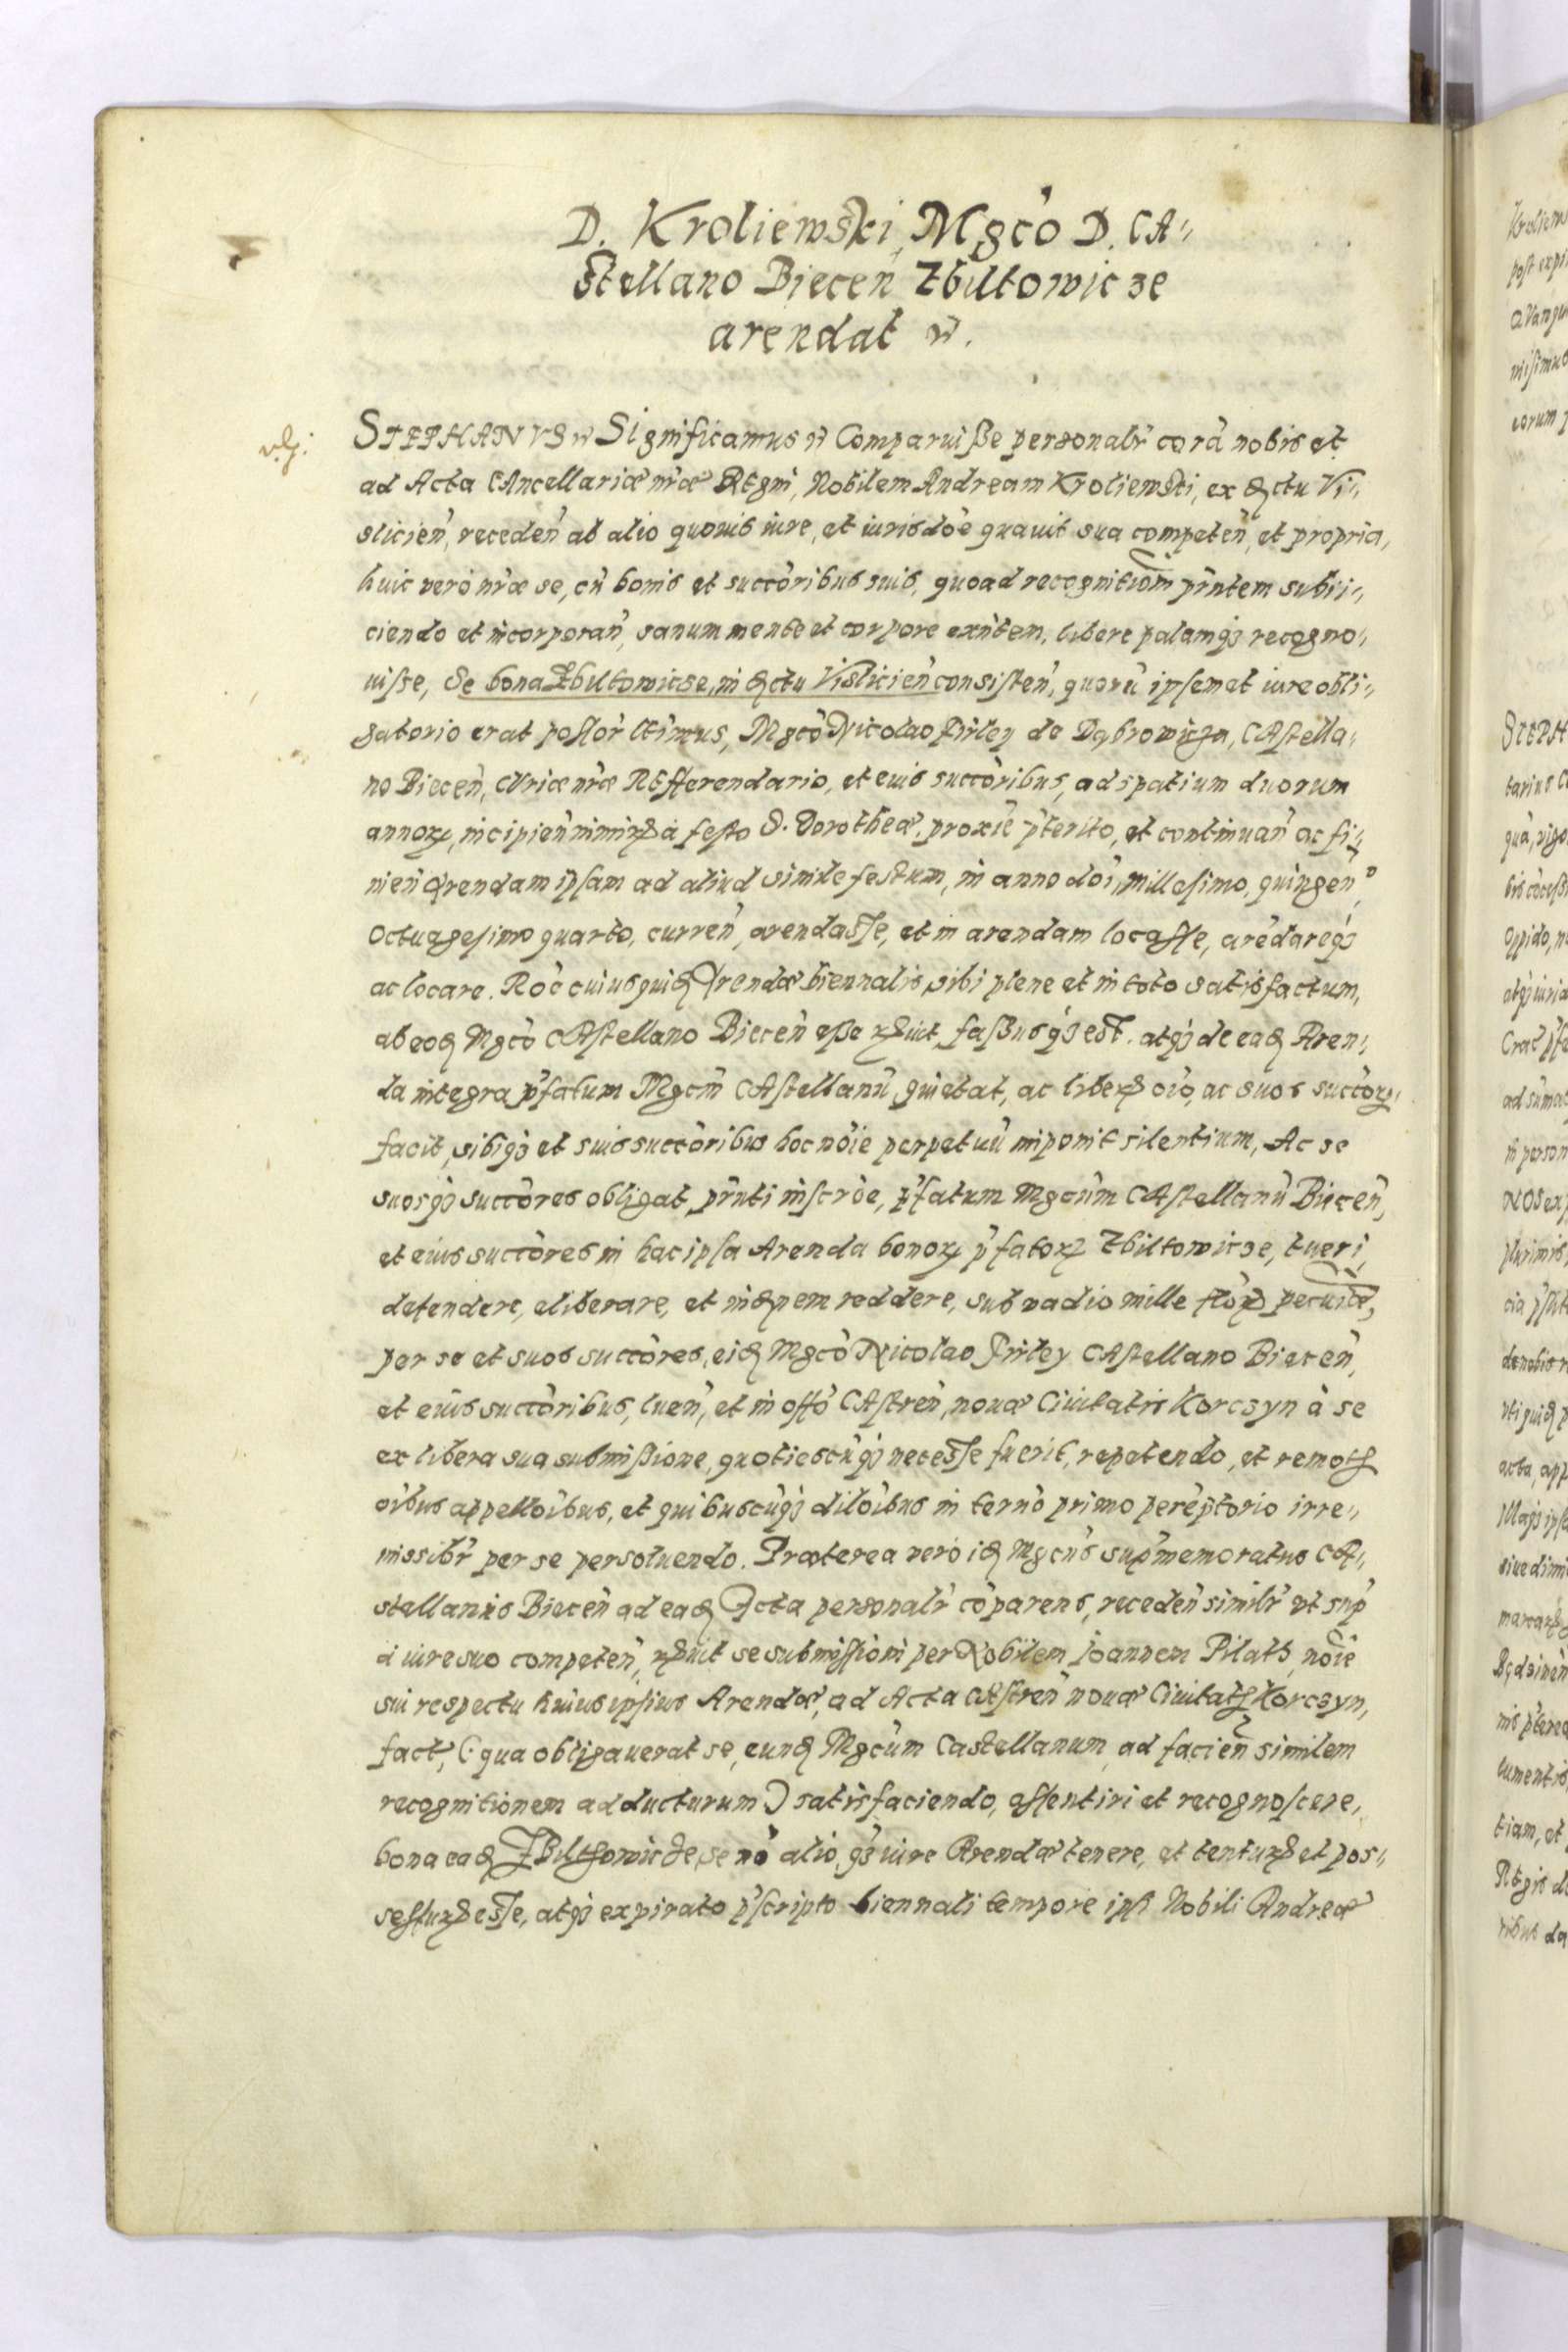 D. Kroliewski, Mgco D. CA-
stellano Biecen̄ Zbiltowicze
arendat etc.
STEPHANVS etc Significamus etc Comparuisse personalr̄ corā nobis et
ad Acta CAncellariæ nr̄æ REgni, Nobilem Andream Kroliewski, ex dꝫctu Vi-
slicien̄, receden̄ ab alio quouis iure, et iurisdōe quauit sua competen̄, et propria,
huic vero nr̄æ se, cū bonis et succōribus suis, quoad recognitiom̄ pn̄tem subii-
ciendo et incorporan̄, sanum mente et corpore exn̄tem, libere palamqꝫ recogno-
uisse, Se bona Zbiltowicze, in dꝫctu Vislicien̄ consisten̄, quorū ipsemet iure obli-
gatorio erat possōr ltīmus, Mgcō Nicolao Firley de Dąbrowicza, CAstella-
no Biecen̄, CVriæ nr̄æ REfferendario, et eius succōribus, ad spatium duorum
annoꝝ, incipien̄ nimiꝝ à festo S. Dorotheæ, proxīe p̄terito, et continuan̄ ac fi-
nien̄ Arendam ipsam ad aliud simile festum, in anno dōi, millesimo, quingen̄o
Octuagesimo quarto, curren̄, arendasse, et in arendam locasse, arēdareqꝫ
ac locare. Roē cuiusquidꝫ Arendæ biennalis, sibi plene et in toto satisfactum,
ab eodꝫ Mgcō CAstellano Biecen̄ esse ꝝuit, fassusqꝫ est. atqꝫ de eadꝫ Aren-
da integra p̄fatum Mgcm̄ CAstellanū quietat, ac libeꝝ oīo, ac suos succōꝝ
facit, sibiqꝫ et suis succōribus hoc nōie perpetuū imponit silentium, Ac se
suosqꝫ succōres obligat, pn̄ti inscrōe, p̄fatum Mgcūm CAstellanū Biecen̄,
et eius succōres in hac ipsa Arenda bonoꝝ p̄fatoꝝ Zbiltowicze, tueri,
defendere, eliberare, et indꝫnem reddere, sub vadio mille flōꝝ pecuīæ,
per se et suos succōres, eidꝫ Mgcō Nicolao Firley CAstellano Biecen̄,
et eius succōribus, luen̄, et in offō CAstren̄, nouæ Ciuitatis Korczyn à se
ex libera sua submissione, quotiescūqꝫ necesse fuerit, repetendo, et remotꝭ
oībus appellōibus, et quibuscūqꝫ dilōibus in termō primo perēptorio irre-
missibr̄ per se persoluendo. Præterea vero idꝫ Mgcus sup̄memoratus CA-
stellanus Biecen̄ ad eadꝫ Acta personalr̄ cōparens, receden̄ similr̄ vt sup̄
à iure suo competen̄, ꝝuit se submissiōni per Nobilem Joannem Pilath, nōie
sui respectu huius ipsius Arendæ, ad Acta CAstren̄ nouæ Ciuitatꝭ Korczyn,
fact, ( qua obligauerat se, eundꝫ Mgcūm Castellanum, ad facien̄ similem
recognitionem adducturum ) satisfaciendo, assentiri et recognoscere,
bona eadꝫ Zbilthowicze, se nō alio, qꝫ iure Arendæ tenere, et tentuꝝ et pos-
sessuꝝ esse, atqꝫ expirato p̄scripto biennali tempore ipsi Nobili Andreæ